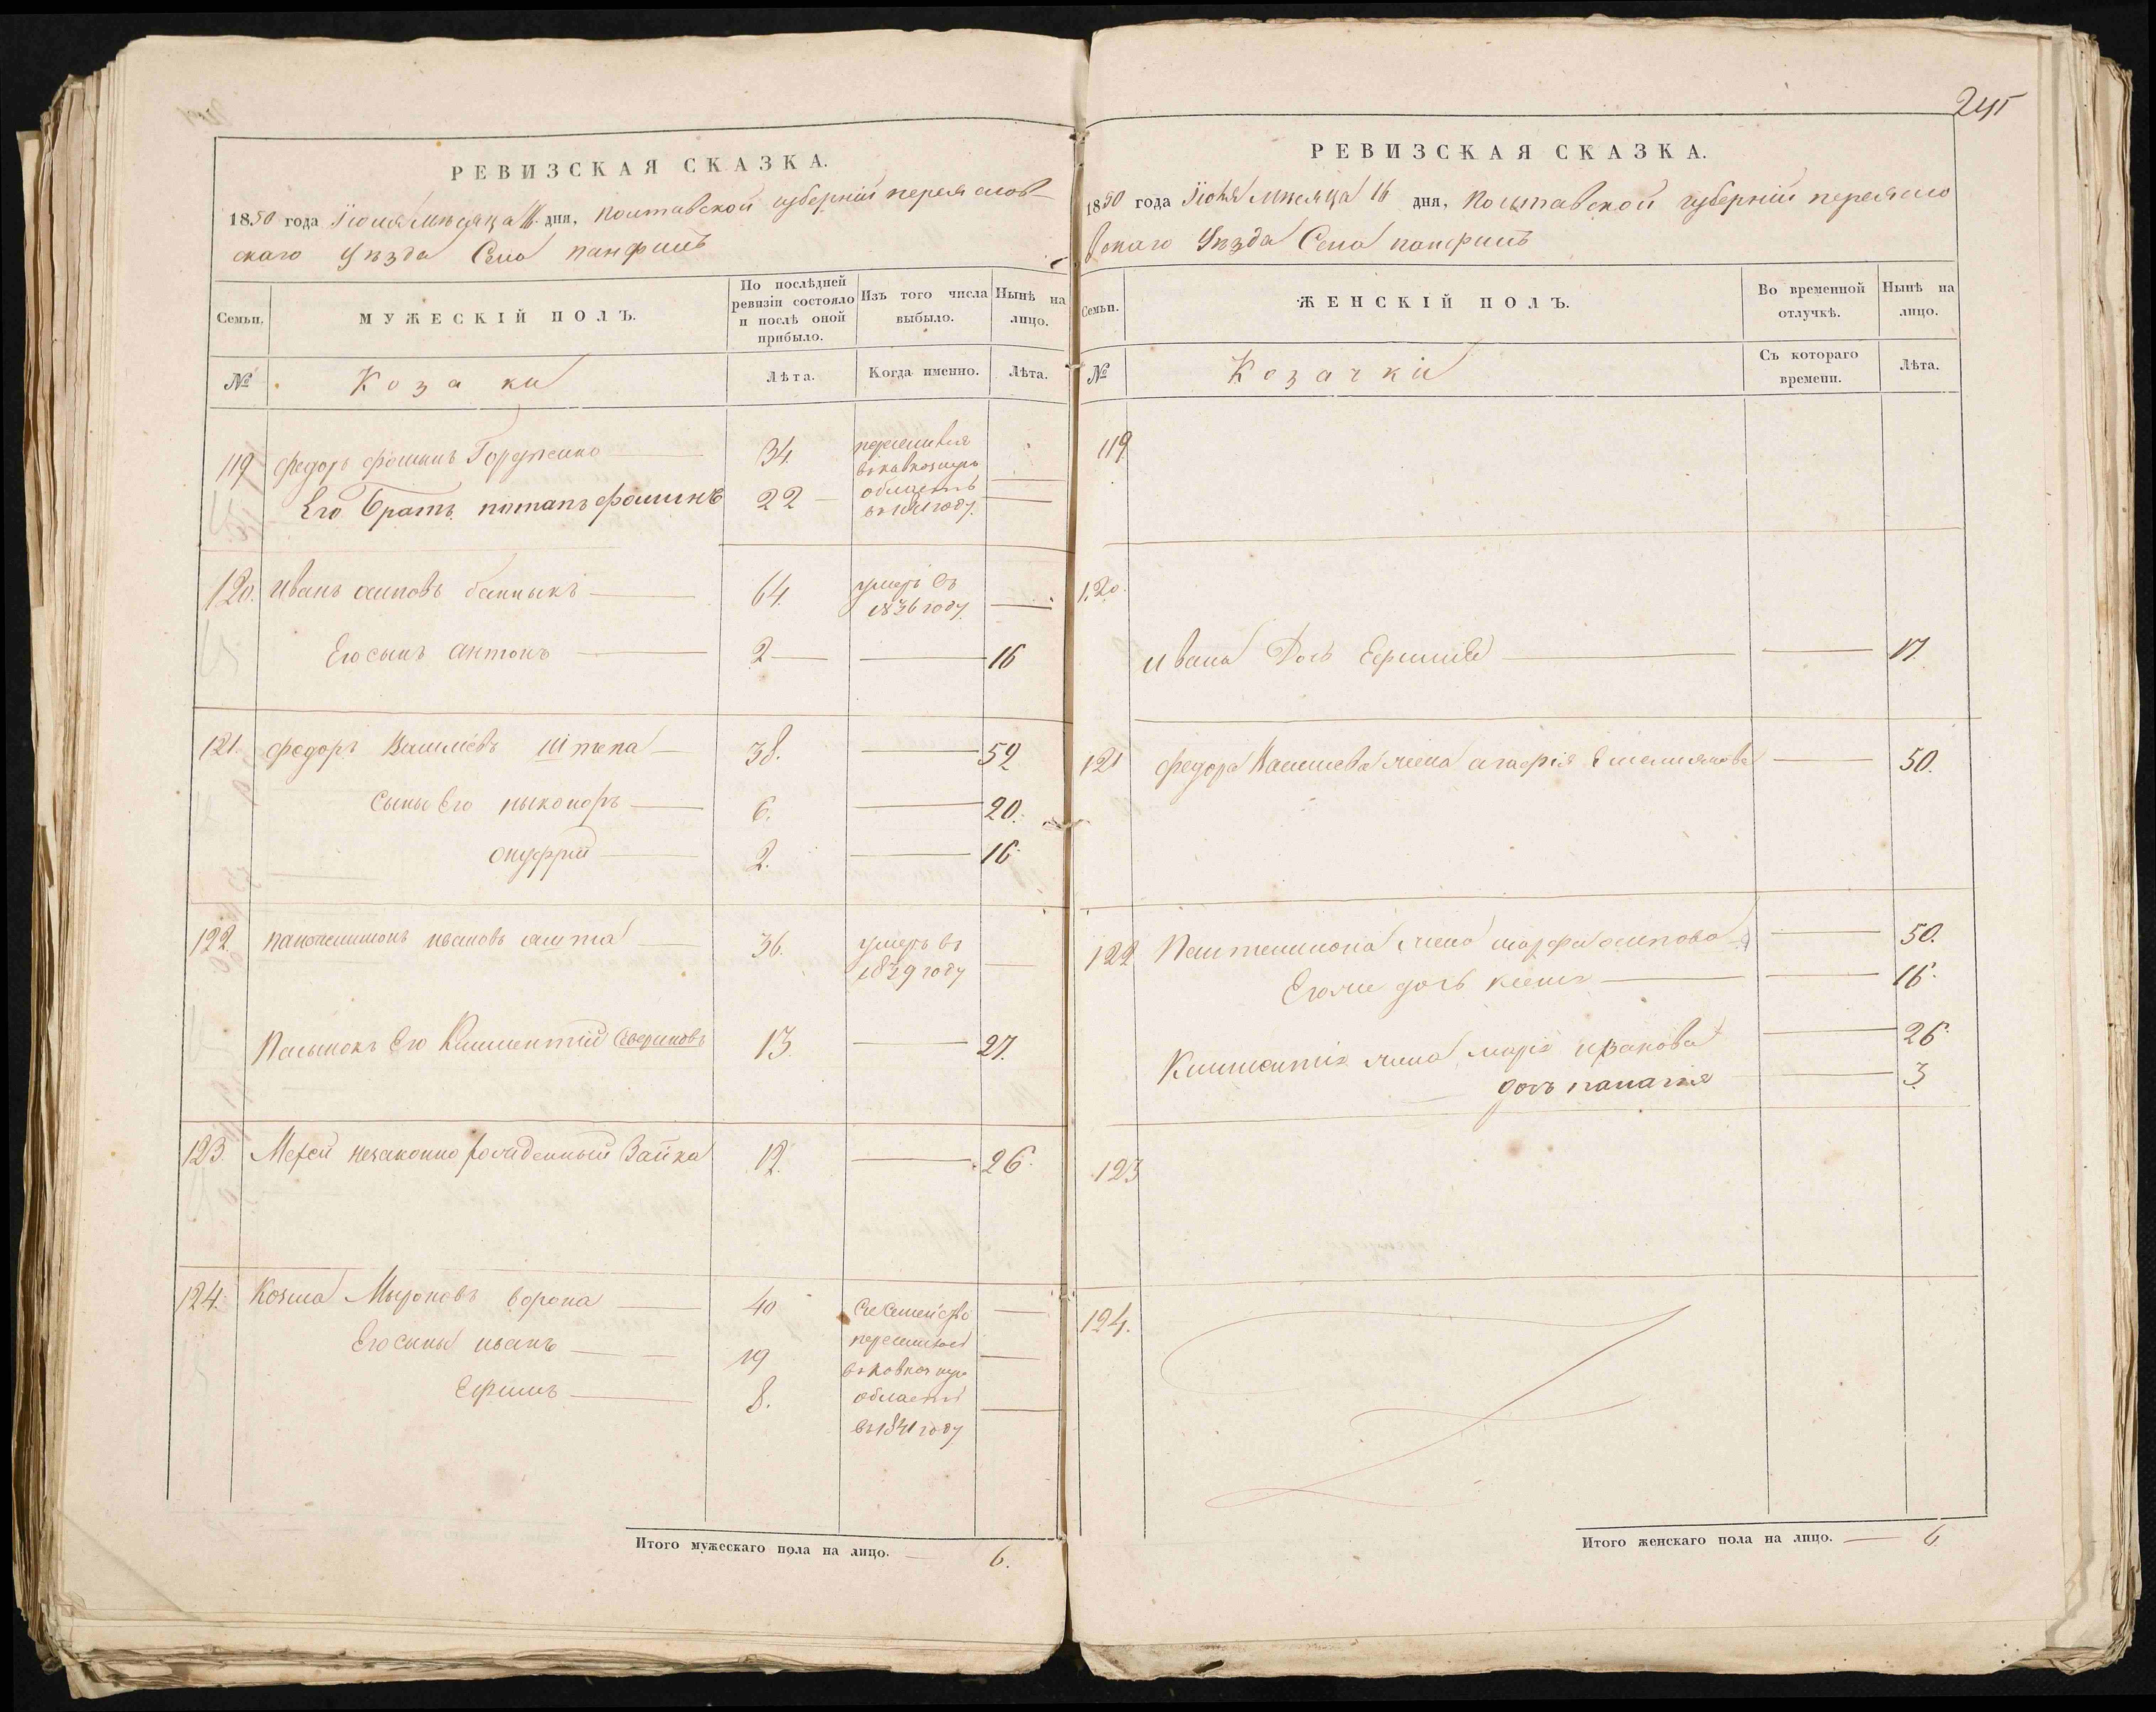 РЕВИЗСКАЯ СКАЗКА.
1850 года Іюня Мѣсяца 16 дня, Полтавской губерніи переяслов-
скаго Уѣзда Села панфилъ
Семьи.
МУЖЕСКІЙ ПОЛЪ.
По послѣдней ревизіи состояло и послѣ оной прибыло.
Изъ того числа выбыло.
Нынѣ на лицо.
№
Козаки
Лѣта.
Когда именно.
Лѣта.
119 федоръ фоминъ 34. переселился
въ кавказскую
Его Братъ потапъ фоминъ 22 область
въ 1841 году.
120. Иванъ осиповъ 64. умеръ въ
1836 году.
Его сынъ антонъ 2 16
121. федоръ Василіевъ Штепа 38. 52
Сыны Его ныконоръ 6. 20.
онуфрій 2. 16
122 пантелимонъ ивановъ 36. умеръ въ
1839 году
Пасынокъ Его Климентій Севериновъ 13. 27.
123. Мефей незаконно рожденный Зайка 12. 26.
124. Козма Мыроновъ ворона 40 Съ Семейство
Его сыны иванъ 19 переселился
въ кавказскую
Ефимъ 8. область
въ 1841 году
Итого мужескаго пола на лицо. 6.
245
РЕВИЗСКАЯ СКАЗКА.
1850 года Іюня мѣсяца 16 дня, Полтавской губерніи переясло
вскаго Уѣзда Села панфилъ
Семьи.
ЖЕНСКІЙ ПОЛЪ.
Во временной отлучкѣ.
Нынѣ на лицо.
№
Козачки
Съ котораго времени.
Лѣта.
119
120.
Ивана Дочь 17.
121 федора Василіева жена агафія Емеліянова 50.
122 Пантелимона жена марфа осипова 50.
Его же дочь 16.
Климентія жена марія 26
дочь палагія 3.
123
124.
Итого женскаго пола на лицо. 6.